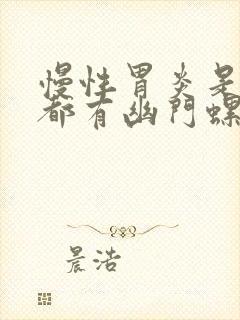 慢性胃炎是
都有幽門螺
晨浩